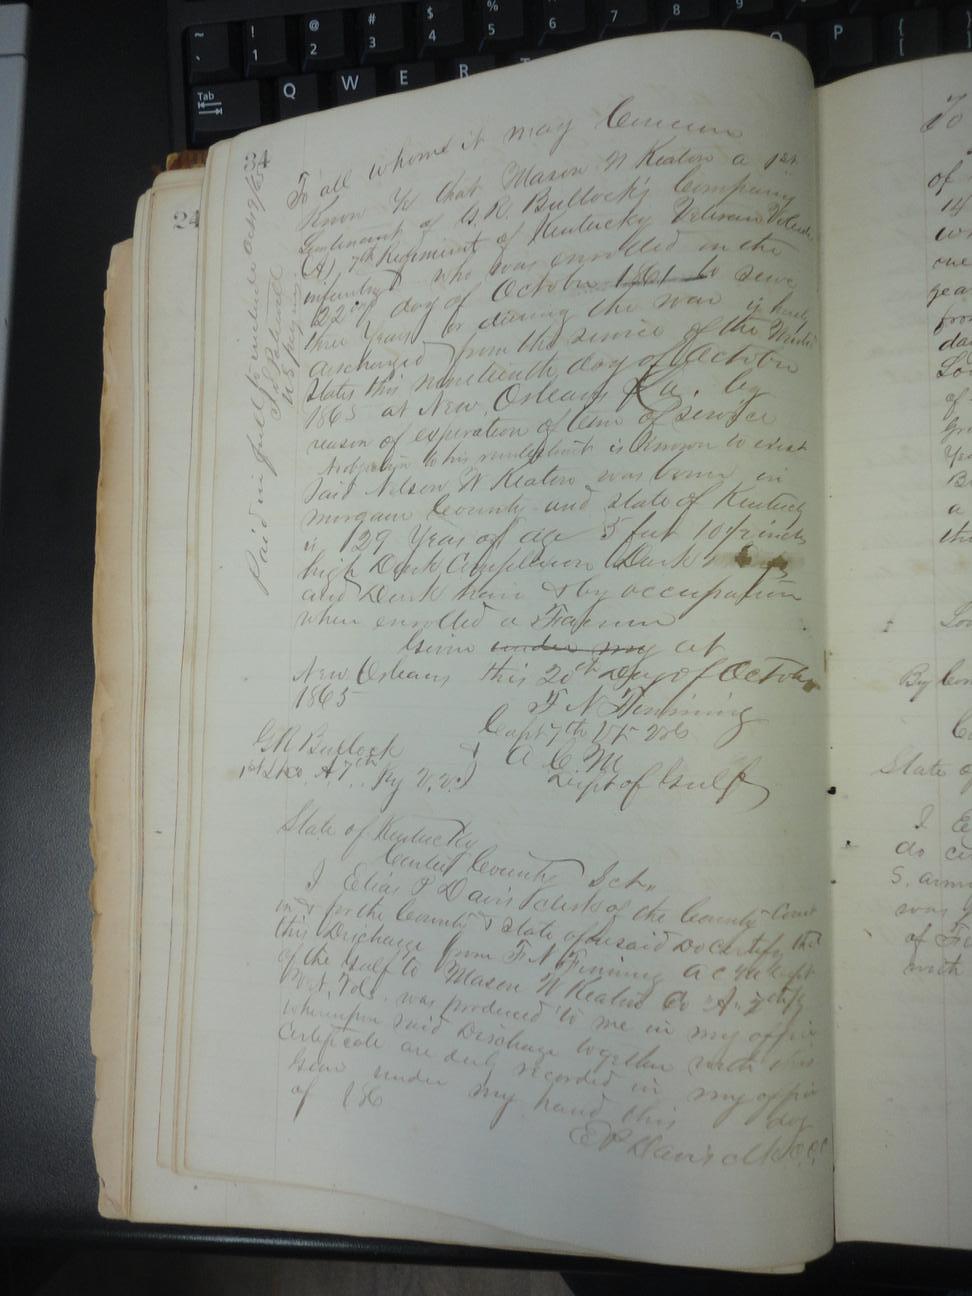 34
24
To all whome it may Concern
Know Ye that Mason W Keaton a 1st
Lieutenant of G. R. Bullock's Company
(A), 7th Regiment of Kentucky Veteran
infantry who was enrolled on the
22nd day of October 1861 to serve
three Years or during the war is hereby
discharged from the service of the United
States this nineteenth day of October
1865 at New Orleans La, by
reason of expiration of term of service
No objection to his reenlistment is known to exist
Said Nelson W Keaton was born in
morgan County and state of Kentucky
is 29 Years of age 5 feet 10 1/2 inches
high Dark Complexion Dark
and Dark hair & by occupation
when enrolled a Farmer
Given under my at
New Orleans this 20th Day of October
1865
F N
Capt 7th Vt Vols
A C M
Dept of Gulf
GR Bullock
1st Co. A 7th Ky V. V.
Paid in full to include Oct 19/65
U S Army
State of Kentucky
Carter County Sct.
I Elias P Davis clerk of the County Court
in & for the County & State aforesaid Do Certify that
this Discharge from F N A C M Dept
of the Gulf to Mason W Keaton Co "A" 7th Ky
Vet. Vols. was produced to me in my office
whereupon said Discharge together with this
Certificate are duly recorded in my office
Given under my hand this day
of 186
E P Davis clk C C C
Tab
Q
W
E
R
P